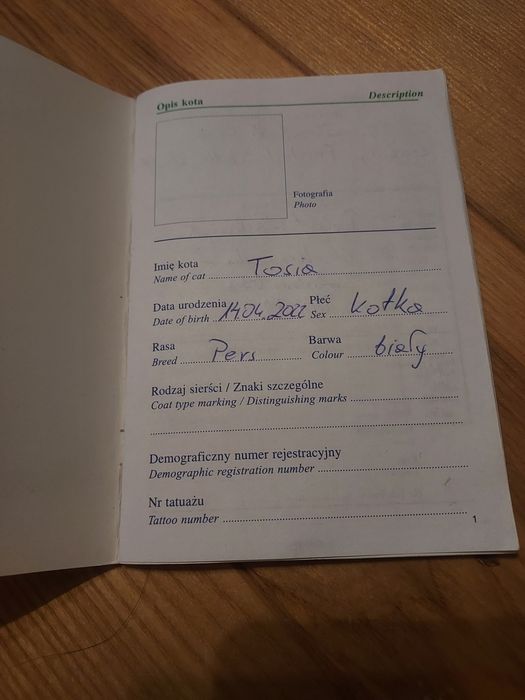 Opis kota Description
Fotografia
Photo
Imię kota
Name of cat Tosia
Data urodzenia 14.04.2022 Płeć Kotka
Date of birth Sex
Rasa Barwa
Breed Pers Colour biały
Rodzaj sierści / Znaki szczególne
Coat type marking / Distinguishing marks
Demograficzny numer rejestracyjny
Demographic registration number
Nr tatuażu
Tattoo number
1